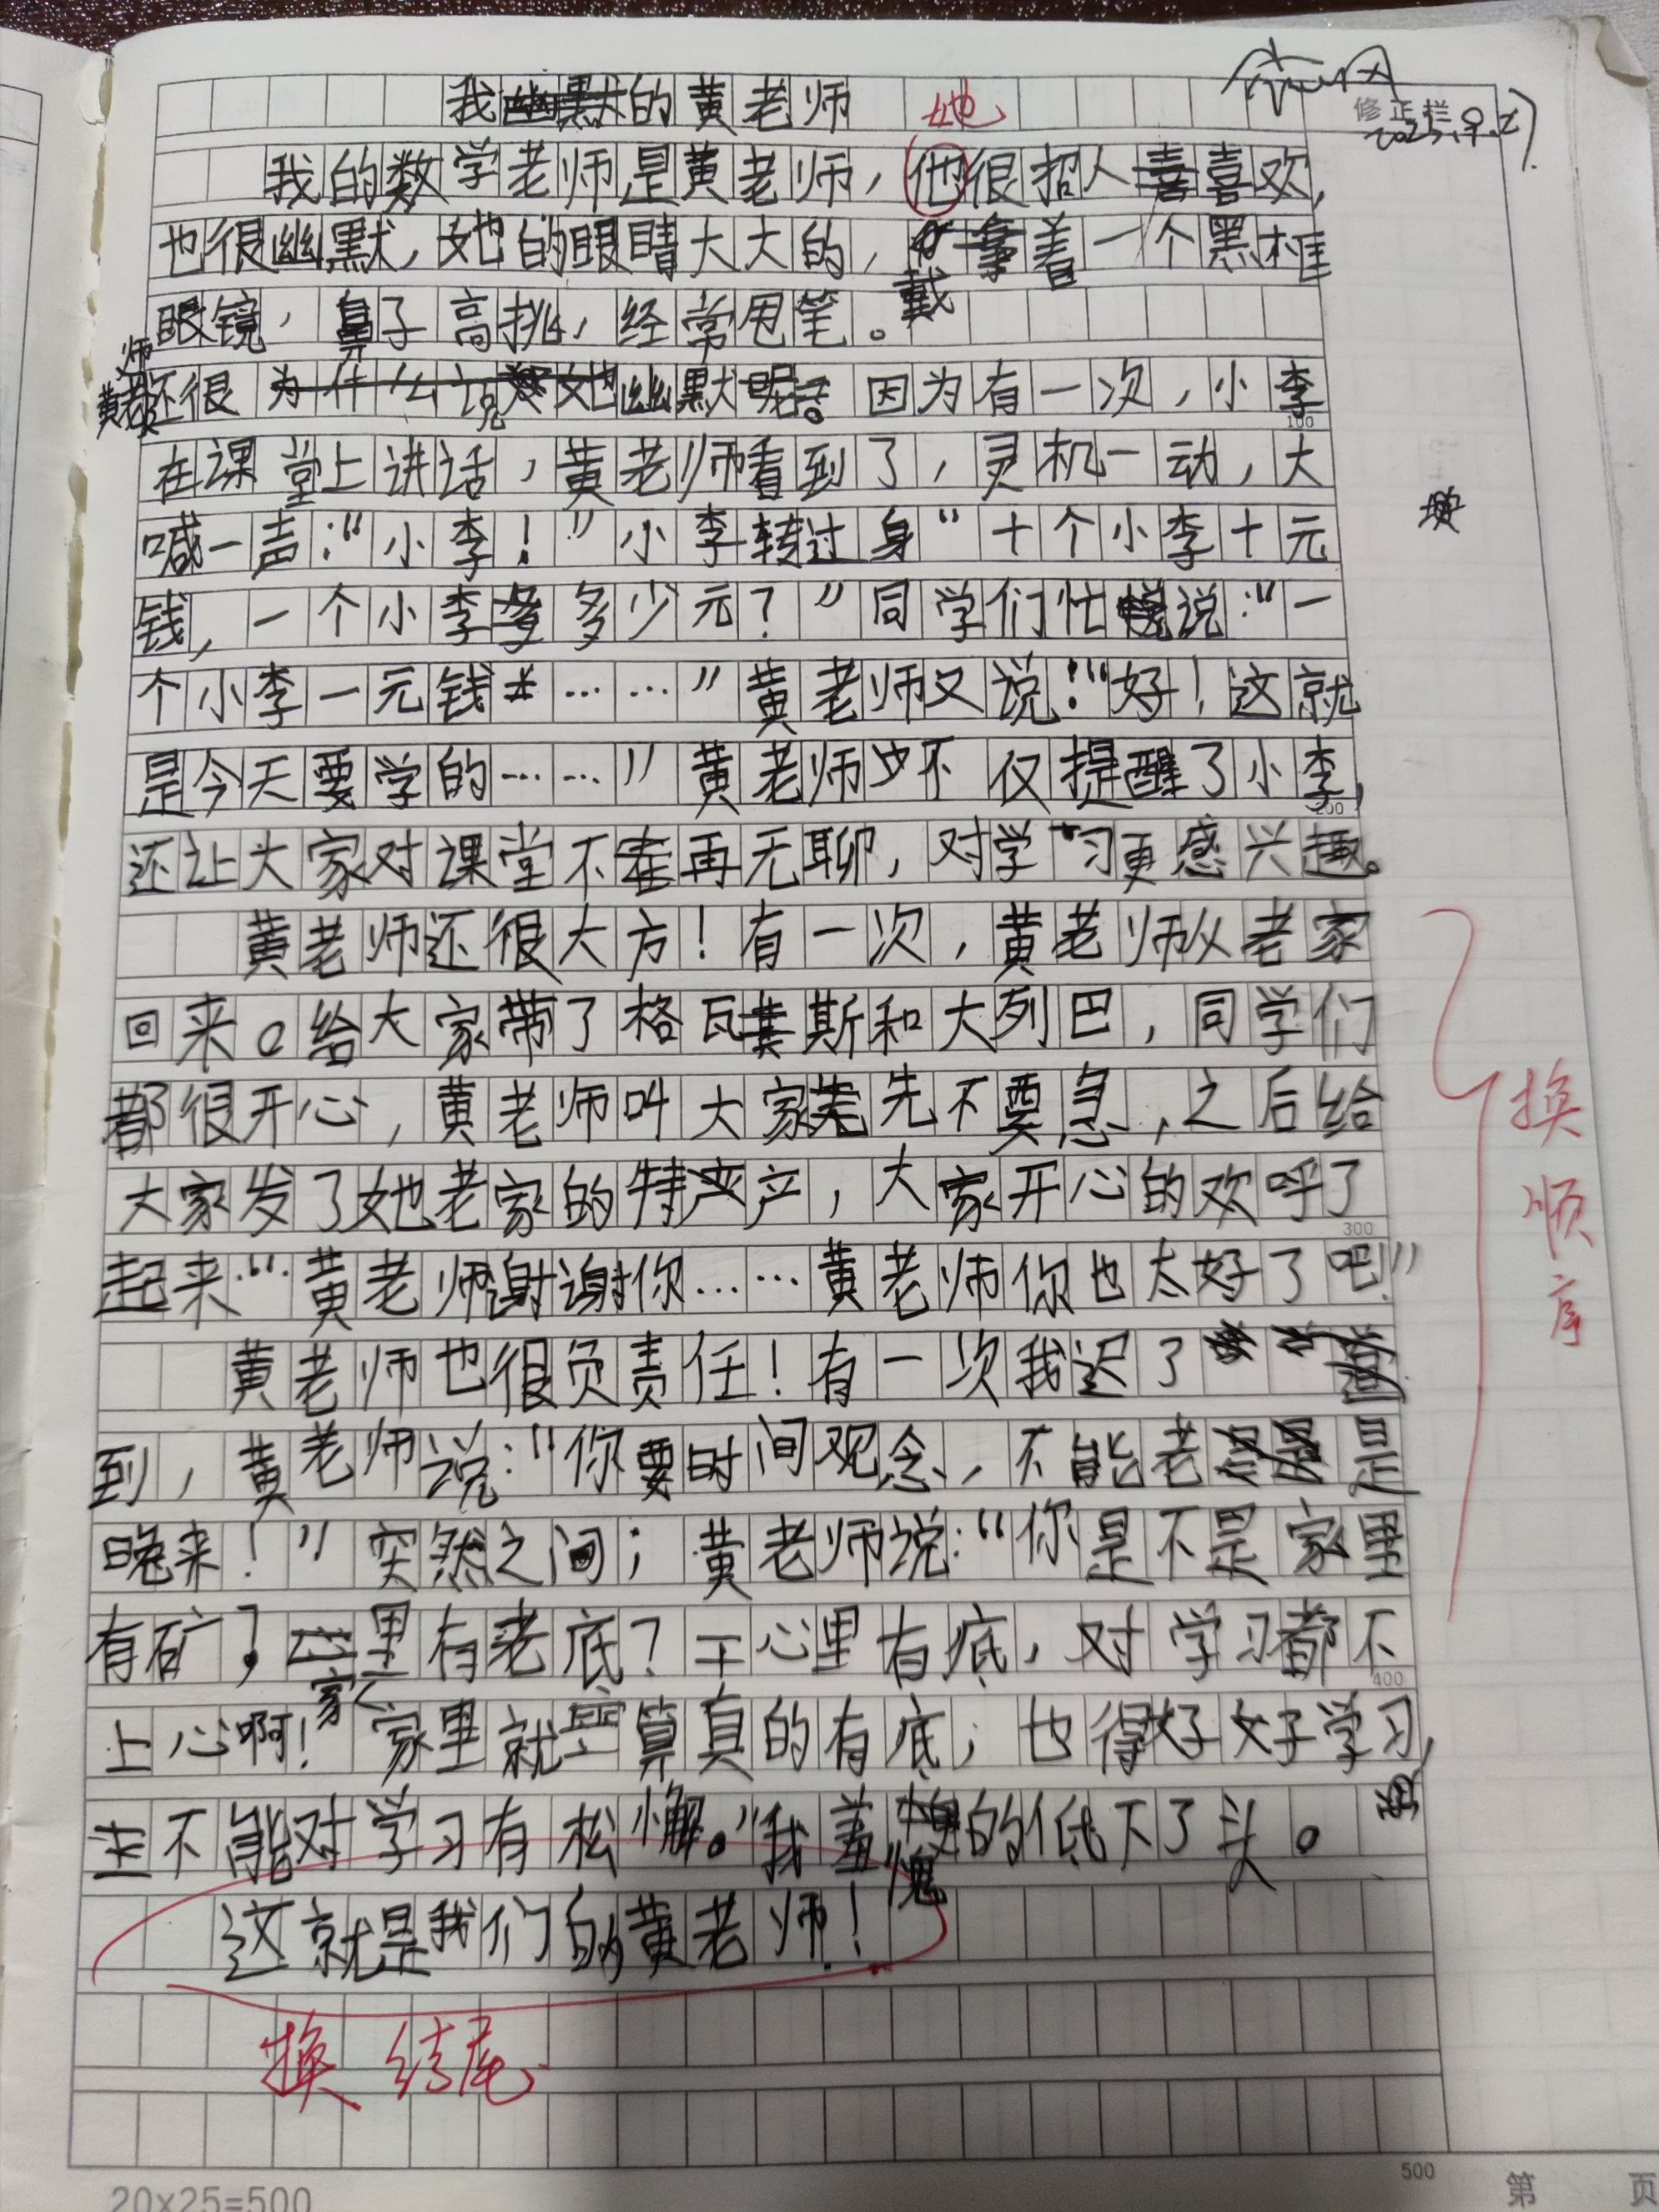 我幽默的黄老师 她
修正栏
我的数学老师是黄老师，他很招人喜喜欢，
也很幽默，她的眼睛大大的，拿着一个黑框
戴
眼镜，鼻子高挑，经常甩笔。
黄老师还很为什么说她幽默呢。因为有一次，小李
100
在课堂上讲话，黄老师看到了，灵机一动，大
喊一声：“小李！”小李转过身“十个小李十元
钱，一个小李多多少元？”同学们忙说说：“一
个小李一元钱……”黄老师又说：“好！这就
是今天要学的……”黄老师不仅提醒了小李，
200
还让大家对课堂不再无聊，对学习更感兴趣。
黄老师还很大方！有一次，黄老师从老家
回来。给大家带了格瓦斯和大列巴，同学们
都很开心，黄老师叫大家先先不要急，之后给
大家发了她老家的特产产，大家开心的欢呼了
300
起来“黄老师谢谢你……黄老师你也太好了吧！”
换顺序
黄老师也很负责任！有一次我迟了
到，黄老师说：“你要时间观念，不能老是
晚来！”突然之间；黄老师说：“你是不是家里
有矿？心里有老底？一心里有底，对学习都不
家
400
上心啊！家里就算真的有底；也得好好学习，
不能对学习有松懈。”我羞愧的低下了头。
愧
这就是我们的黄老师！
换结尾
500
20×25=500
第 页